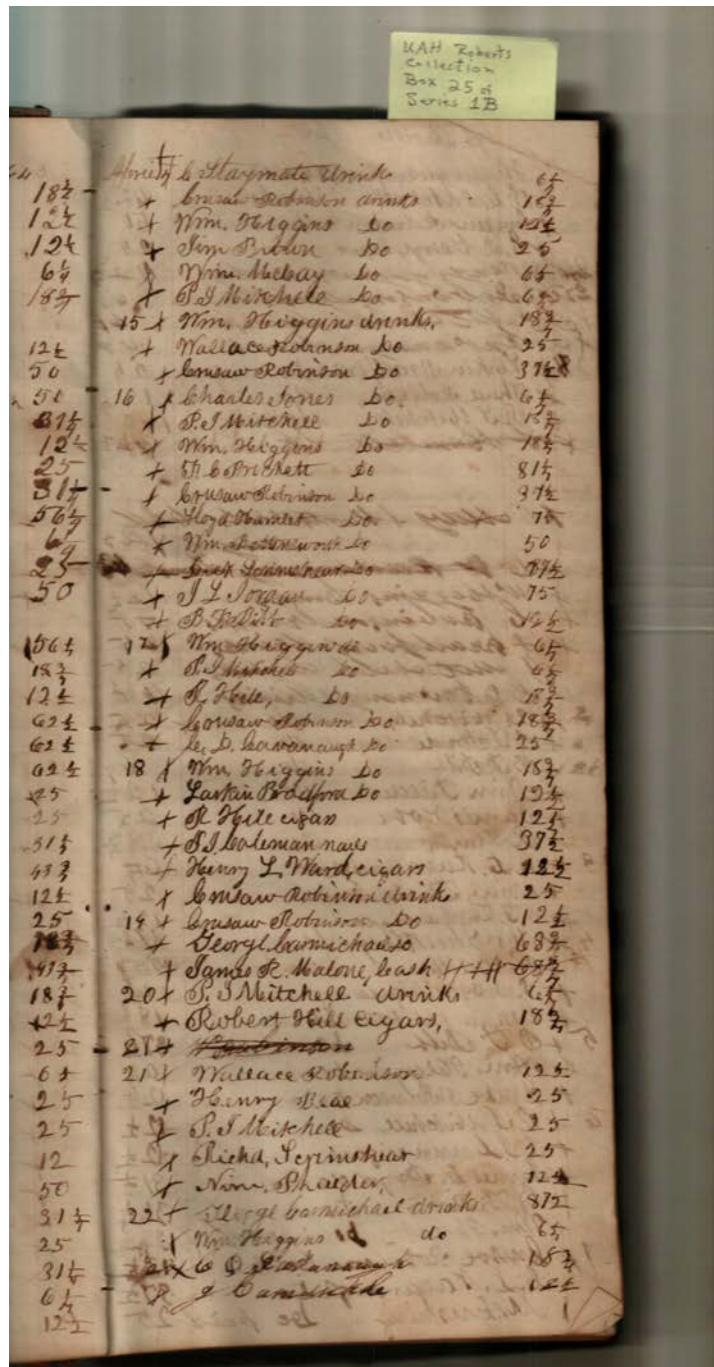 UAH Roberts
Collection
Box 25 of
Series 1B
64
18 3/4
12 1/2
12 1/2
6 1/4
18 3/4
12 1/2
50
50
37 1/2
12 1/2
25
31 1/4
56 1/4
6 1/4
25
50
56 1/4
18 3/4
12 1/2
62 1/2
62 1/2
62 1/2
25
25
31 1/4
43 3/4
12 1/2
25
18 3/4
43 3/4
18 3/4
12 1/2
25
6 1/4
25
25
12
50
31 1/4
25
31 1/4
6 1/4
12 1/2
C Slaymate drink 6 1/4
+ Crusaw Robinson drinks 18 3/4
+ Wm. Higgins Do
+ Jim Brown Do 25
Wm. McCay Do 6 1/4
+ P. J Mitchell Do 6 1/4
15 + Wm. Higgins drinks, 18 3/4
+ Wallace Robinson Do 25
+ Crusaw Robinson Do 37 1/2
16 + Charles Jones Do. 6 1/4
+ P. J Mitchell Do 18 3/4
+ Wm. Higgins Do 18 3/4
+ Prickett Do 81 1/4
+ Crusaw Robinson Do 37 1/2
+ Do. 75
+ Wm. Do 50
Do 87 1/2
+ J L Jordan Do 75
+ Do 12 1/2
17 + Wm Higgins do 6 1/4
+ P. J Mitchell Do 6 1/4
+ R. Hill, Do 18 3/4
+ Crusaw Robinson Do 18 3/4
+ C. D. Cavanaugh Do 25
18 + Wm. Higgins Do 18 3/4
+ Larkin Bradford Do 12 1/2
+ R Hill cigars 12 1/2
+ S J Coleman nails 37 1/2
+ Henry L. Ward, cigars 12 1/2
+ Crusaw Robinson drink 25
19 + Crusaw Robinson Do 12 1/2
+ George Carmichael 68 3/4
+ James R. Malone, Cash 68 3/4
20 + P. J Mitchell drinks 6 1/4
+ Robert Hill cigars, 18 3/4
21 + Robinson
21 + Wallace Robinson 12 1/2
+ Henry 25
+ P. J Mitchell 25
+ Richd, Scrimshear 25
+ 12 1/2
22 + George Carmichael drinks 87 1/2
+ Wm Higgins do 6 1/4
C D Cavanaugh 18 3/4
12 1/2